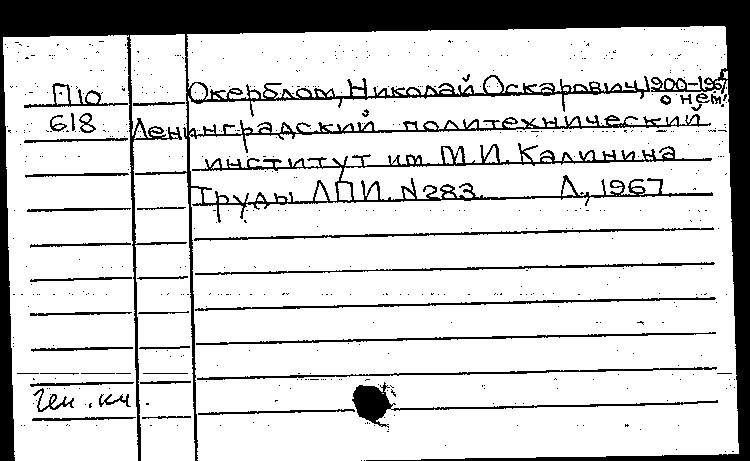 П10 Окерблом, Николай Оскарович, 1900-1967
о нем:
618 Ленинградский политехнический
институт им. М.И. Калинина
Труды ЛПИ. N 283. Л., 1967
Ген. кч.